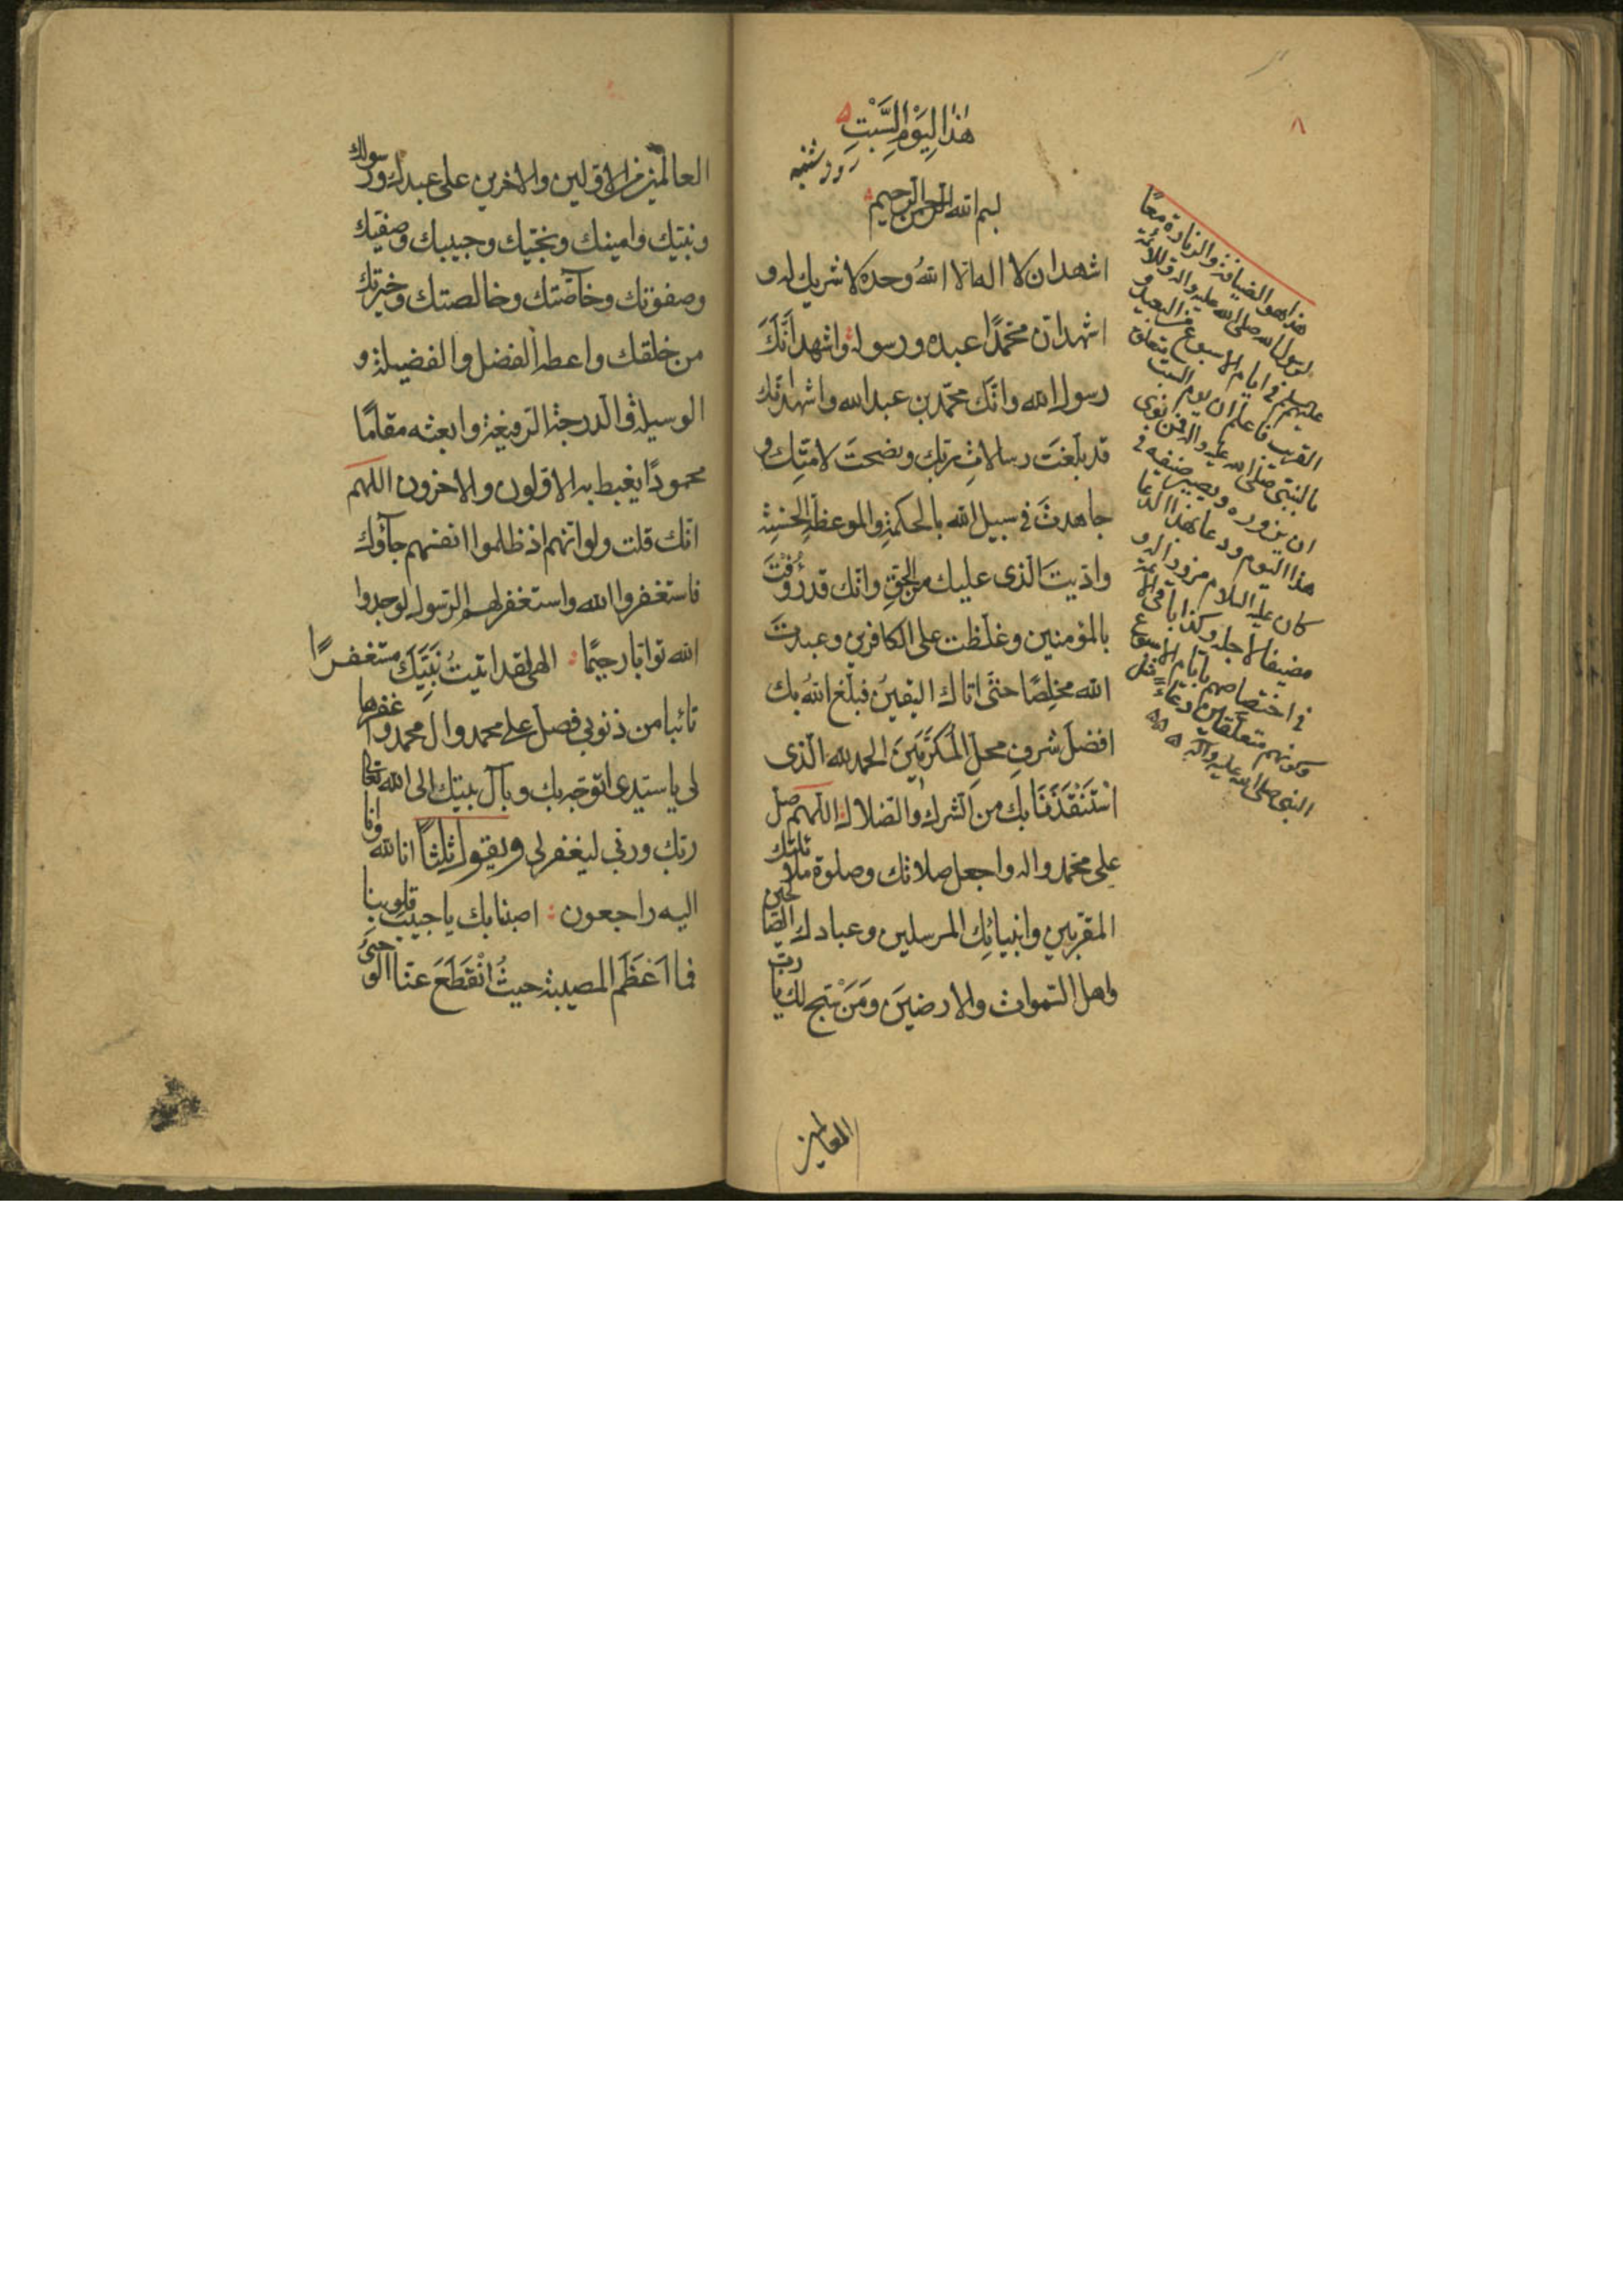 ٨
هٰذا لِيَوْمِ السَّبْتِ
روز شنبه
بسم الله الرحمن الرحیم
اشهد ان لا اله الا اللهُ وحده لا شریك له و
اشهد انّ محمّدًا عبده و رسوله واشهد اَنَّكَ
رسول الله وانّك محمّد بن عبد الله واشهد انّك
قد بلّغتَ رسالاتِ ربّك ونصحتَ لامّتِك و
جاهدتَ فی سبیل الله بالحکمةِ والموعظةِ الحسنةِ
وادّیتَ الّذی علیك من الحقِّ وانّك قد رَؤُفْتَ
بالمؤمنین وغلَظت علی الکافرین وعبدتَ
الله مخلِصًا حتّی اتاك الیقینُ فبلّغ اللهُ بك
افضلَ شرفِ محلِّ الْمُکَرَّمِینَ الحمد لله الّذی
اسْتَنْقَذَنَا بك من الشرك والضلال اللّهم صلّ
علی محمّد واله واجعل صلاتك وصلوة ملائکتك
المقرّبین وانبیائِك المرسلین وعبادك الصّالحین
واهل السّموات والارضینَ ومَنْ سَبّح لك یا ربّ
العالمین
هذا هو الضیافة والزیارة معًا
لرسول الله صلی الله علیه واله وللائمة
علیهم السلم فی ایام الاسبوع من البعید و
القریب فاعلم ان یوم السبت متعلق
بالنبی صلی الله علیه واله فمن نوی
ان یزوره ویصیر ضیفه فی
هذا الیوم ودعا بهذا الدعا
کان علیه السلام مزورا له و
مضیفا لاجله وکذا باقی الائمة
فی اختصاصهم بایام الاسبوع
وکونهم متعلقین دعاءً مثل
النبی صلی الله علیه وآله
العالمین من الاوّلین والاخرین علی عبدك ورسولك
ونبیّك وامینك ونجیّك وحبیبك وصفیّك
وصفوتك وخاصّتك وخالصتك وخیرتك
من خلقك واعطه الفضل والفضیلة و
الوسیلة والدرجة الرّفیعة وابعثه مقامًا
محمودًا یغبطه به الاوّلون والاخرون اللهم
انّك قلت ولو انّهم اذ ظلموا انفسهم جآؤك
فاستغفروا الله واستغفر لهم الرّسول لوجدوا
الله توابا رحیمًا الهی لقد اتیتُ نَبِیَّكَ مستغفرًا
تائبا من ذنوبی فصلّ علی محمد وال محمد واغفرها
لی یا سیّدی اتوجّه بك وبآل بیتك الی الله تعالی
ربّك وربّی لیغفر لی ویقول ثلثًا انا لله وانا
الیه راجعون اصبنا بك یا حبیب قلوبنا
فما اَعْظَمَ المصیبة حیثُ انْقَطَعَ عنّا الوحیُ